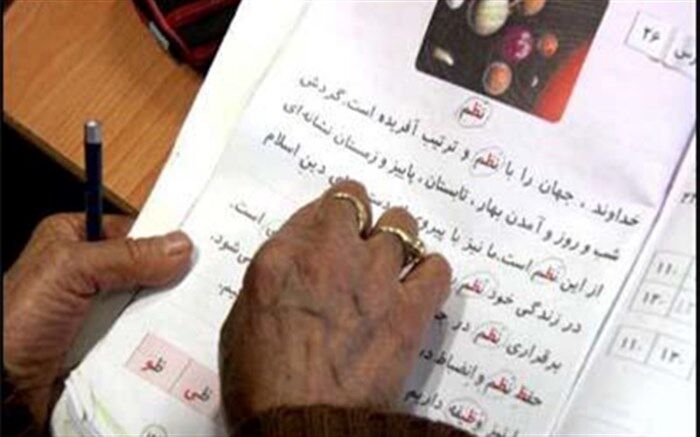 درس ۲۶
نظم
خداوند ، جهان را با نظم و ترتیب آفریده است. گردش
شب و روز و آمدن بهار ، تابستان ، پاییز و زمستان نشانه‌ای
از این نظم است. ما نیز با پیروی دین اسلام
در زندگی خود نظم است.
برقراری نظم در می‌شود.
حفظ نظم و انضباط
نیز وظیفه داریم
ظی ظو
۱۱۰
۱۳۰
۱۱۰ ۱۳۰